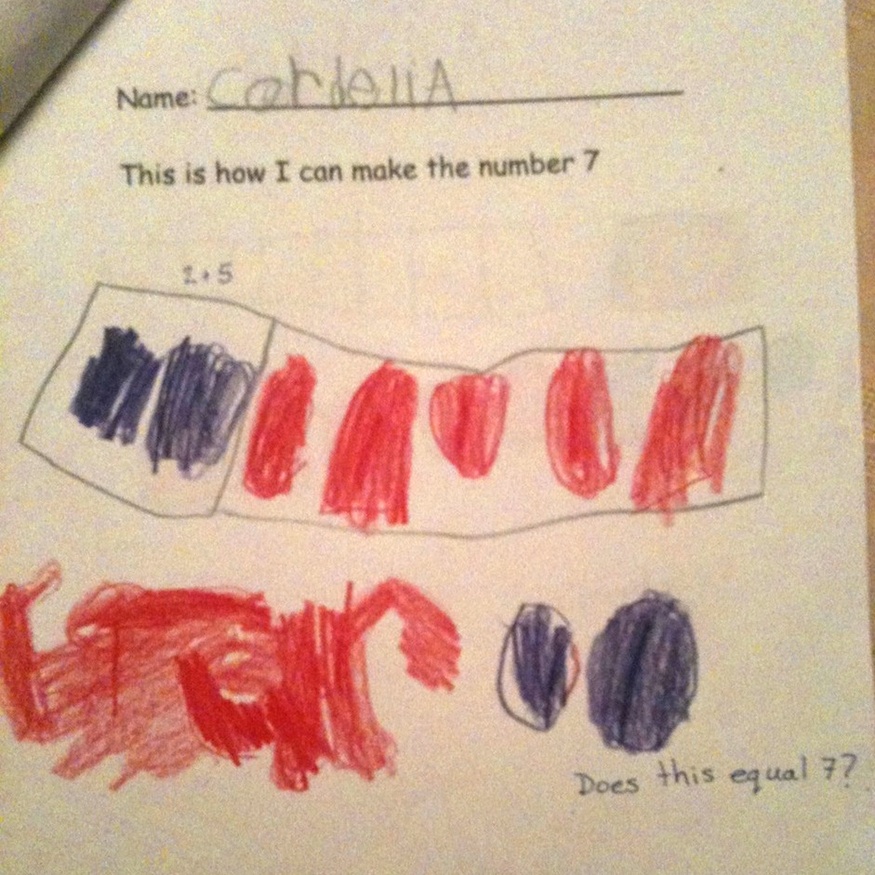 Name: CordeliA
This is how I can make the number 7
2+5
Does this equal 7?